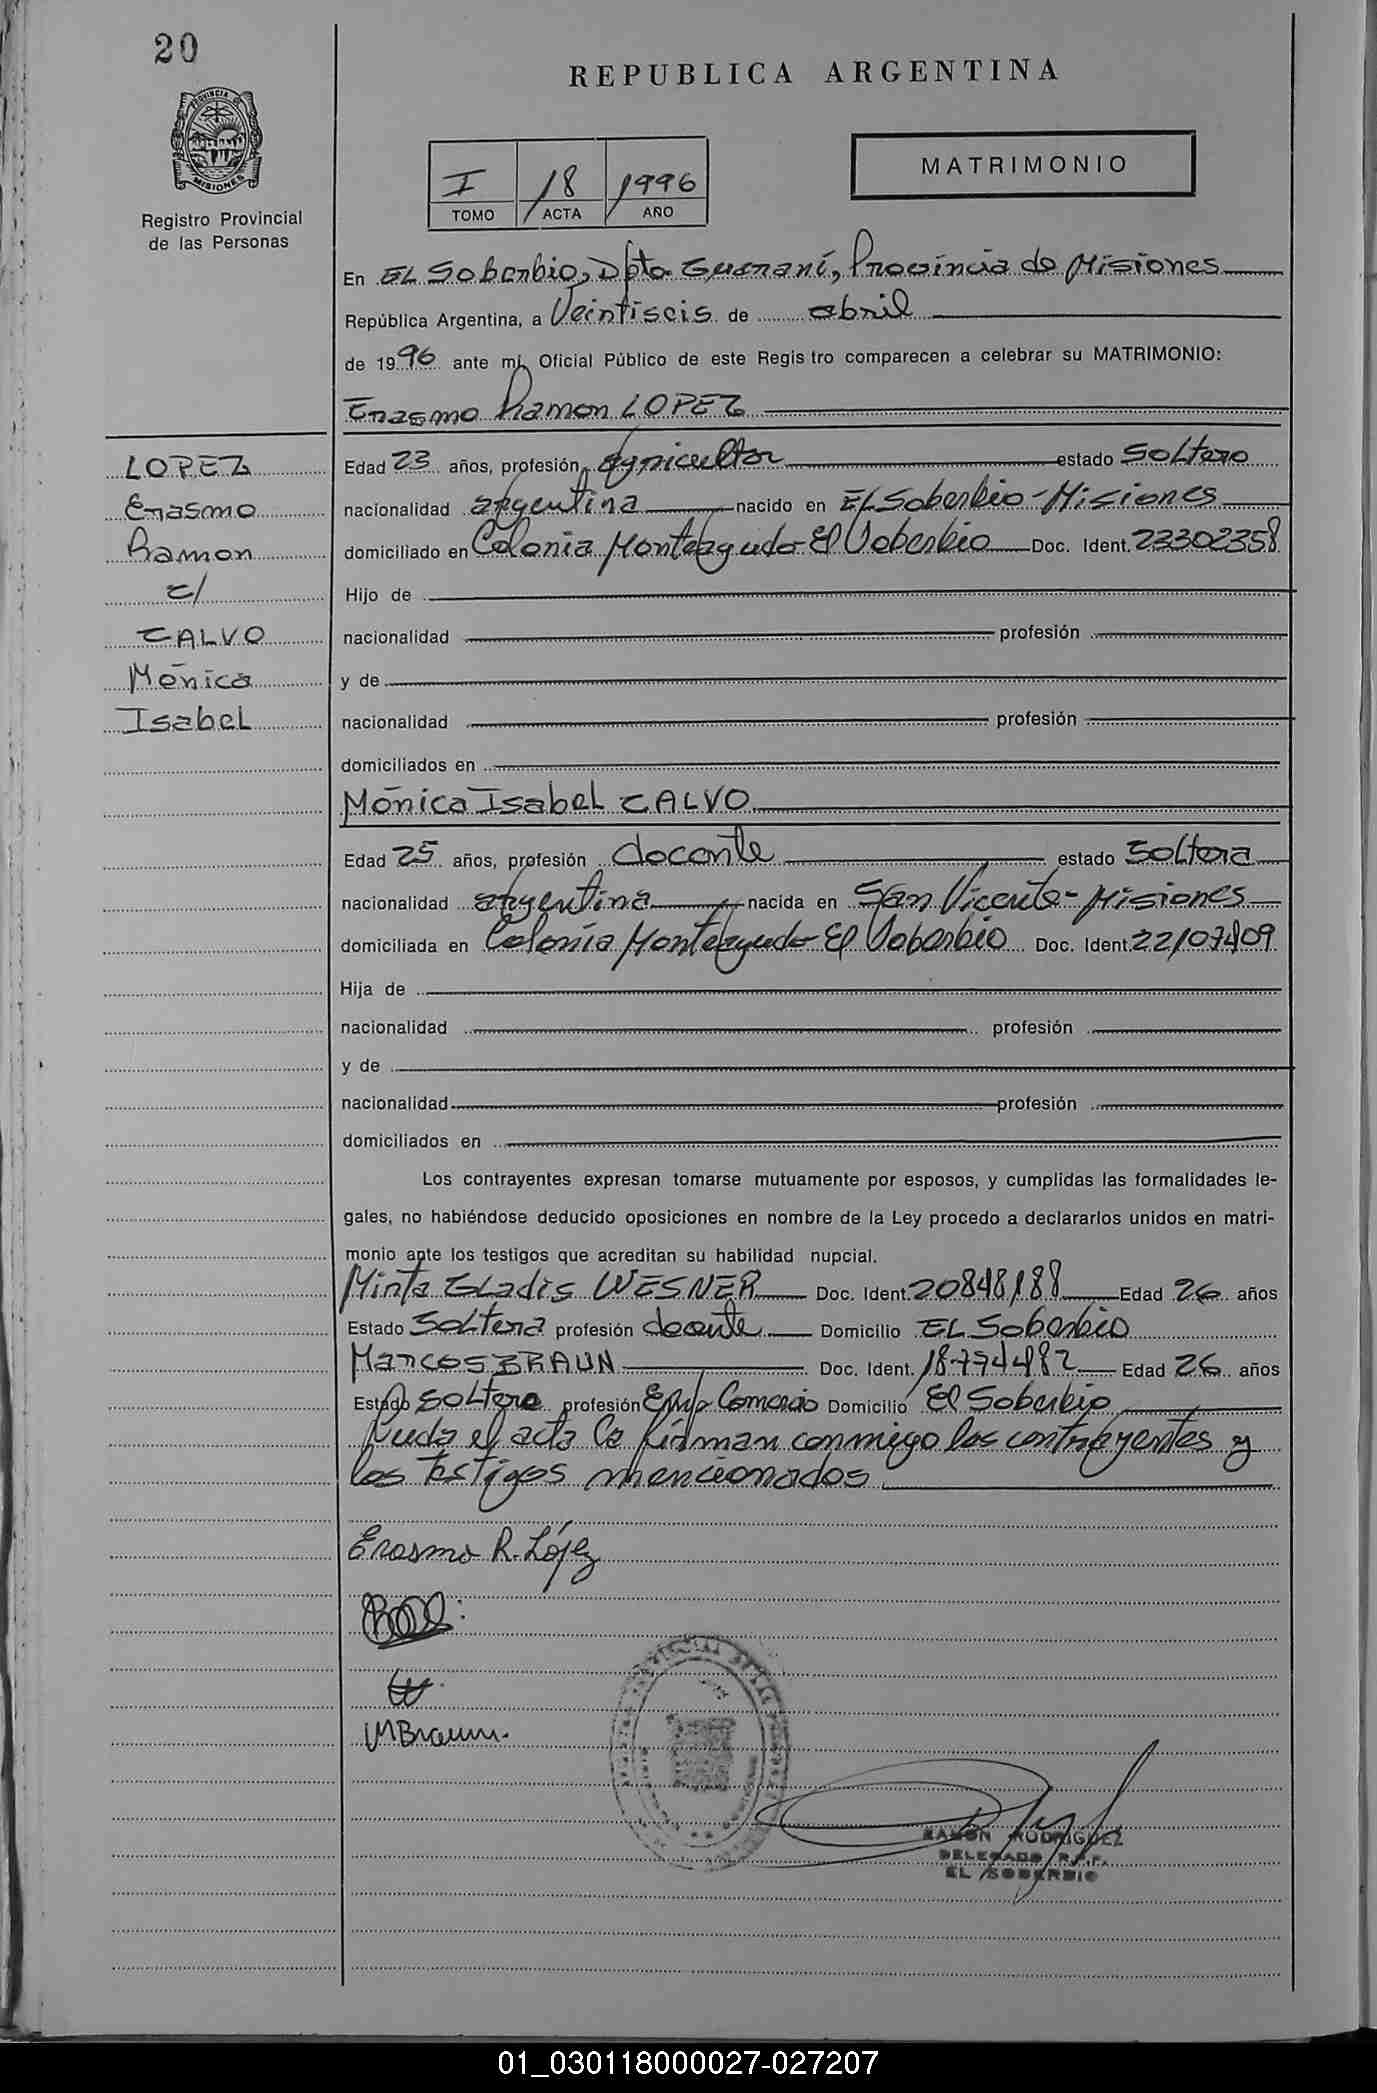 20
REPUBLICA ARGENTINA
PROVINCIA DE
MISIONES
Registro Provincial
de las Personas
I 18 1996
TOMO ACTA AÑO
MATRIMONIO
En EL Soberbio, Dpto Guaraní, Provincia de Misiones
República Argentina, a Veintiseis de abril
de 1996 ante mí, Oficial Público de este Regis tro comparecen a celebrar su MATRIMONIO:
Erasmo Ramon LOPEZ
LOPEZ
Erasmo
Ramon
c/
CALVO
Mónica
Isabel
Edad 23 años, profesión agricultor estado Soltero
nacionalidad argentina nacido en EL Soberbio-Misiones
domiciliado en Colonia Monteagudo El Soberbio Doc. Ident. 23302358
Hijo de
nacionalidad profesión
y de
nacionalidad profesión
domiciliados en
Mónica Isabel CALVO
Edad 25 años, profesión docente estado Soltera
nacionalidad argentina nacida en San Vicente-Misiones
domiciliada en Colonia Monteagudo El Soberbio Doc. Ident. 22107409
Hija de
nacionalidad profesión
y de
nacionalidad profesión
domiciliados en
Los contrayentes expresan tomarse mutuamente por esposos, y cumplidas las formalidades le-
gales, no habiéndose deducido oposiciones en nombre de la Ley procedo a declararlos unidos en matri-
monio ante los testigos que acreditan su habilidad nupcial.
Mirta Gladis WESNER Doc. Ident. 20848188 Edad 26 años
Estado Soltera profesión docente Domicilio EL Soberbio
Marcos BRAUN Doc. Ident. 18794482 Edad 26 años
Estado Soltero profesión Emp Comercio Domicilio El Soberbio
el acta la firman conmigo los contrayentes y
los testigos mencionados
Erasmo R. López
MBraun.
RAMON RODRIGUEZ
DELEGADO R.P.P.
EL SOBERBIO
01_030118000027-027207